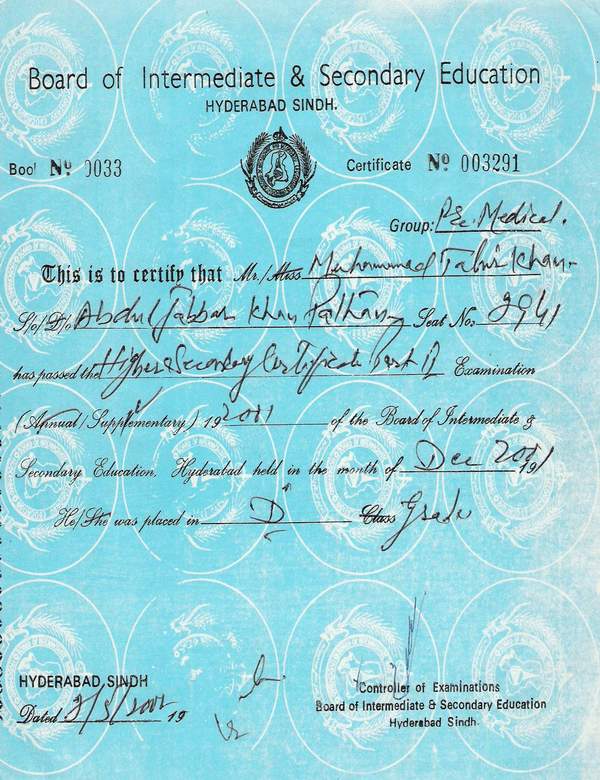 Board of Intermediate & Secondary Education
HYDERABAD SINDH.
Bool No 0033 Certificate No 003291
Group: P.E. Medical.
This is to certify that Mr./Miss Muhammad Tahir Khan
S/o/D/o Abdul Jabbar Khan Pathan Seat No. 2941
has passed the Higher Secondary Certificate Part II Examination
(Annual/Supplementary) 19 2001 of the Board of Intermediate &
Secondary Education, Hyderabad held in the month of Dec 2001 19
He/She was placed in D Class Grade
HYDERABAD, SINDH
Dated 2/3/2002 19
Controller of Examinations
Board of Intermediate & Secondary Education
Hyderabad Sindh.